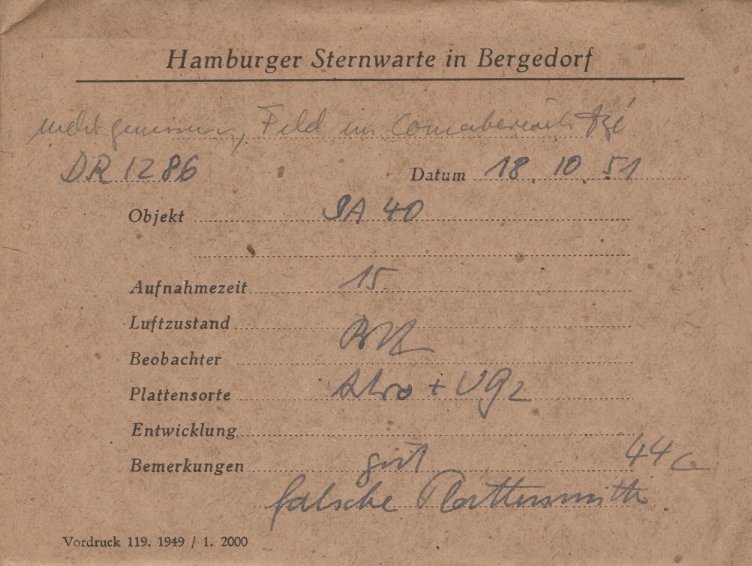 Hamburger Sternwarte in Bergedorf
Feld im
DR 1286 Datum 18. 10. 51
Objekt SA 40
Aufnahmezeit 15
Luftzustand
Beobachter
Plattensorte Astro + UG2
Entwicklung
Bemerkungen gut 44
falsche Plattenmitte
Vordruck 119. 1949 / 1. 2000